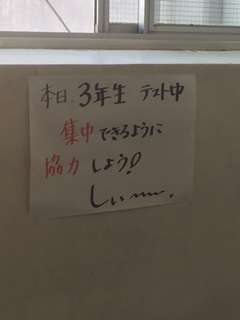 本日、3年生 テスト中
集中できるように
協力しよう!
しぃ〜〜.